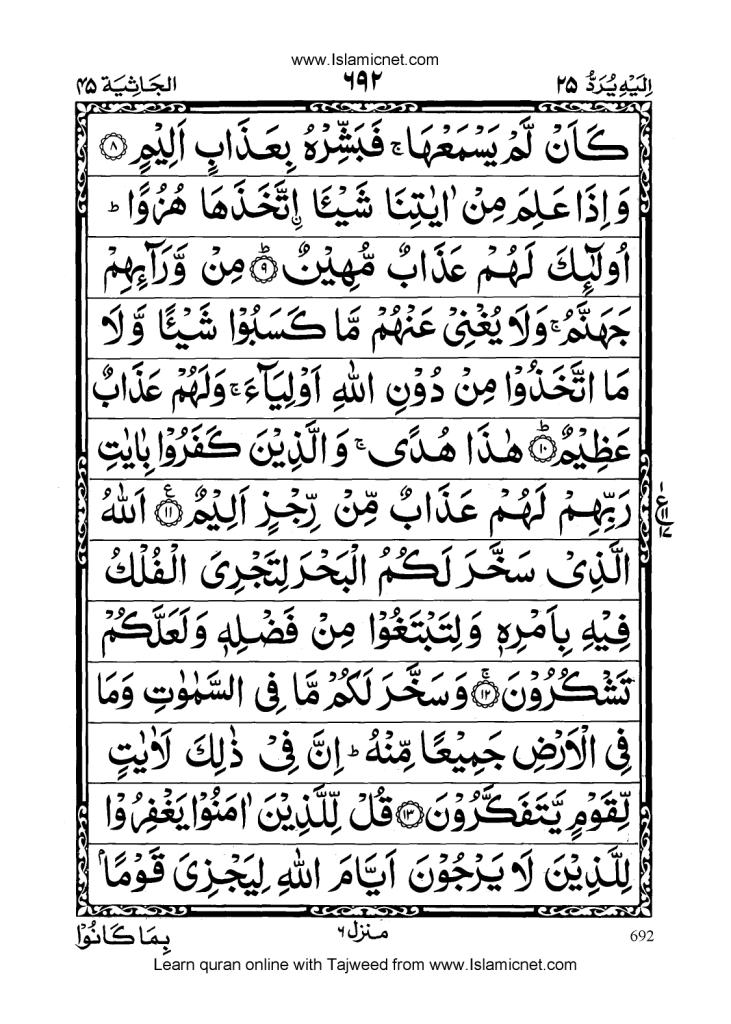 www.Islamicnet.com
اِلَيْهِ يُرَدُّ ۲۵ ۶۹۲ الجَاثِيَة ۴۵
كَاَنْ لَّمْ يَسْمَعْهَا ۚ فَبَشِّرْهُ بِعَذَابٍ اَلِيْمٍ ۸
وَاِذَا عَلِمَ مِنْ اٰيٰتِنَا شَيْـًٔا اِۨتَّخَذَهَا هُزُوًا ؕ
اُولٰٓئِكَ لَهُمْ عَذَابٌ مُّهِيْنٌ ؕ ۹ مِنْ وَّرَآئِهِمْ
جَهَنَّمُ ۚ وَلَا يُغْنِيْ عَنْهُمْ مَّا كَسَبُوْا شَيْـًٔا وَّلَا
مَا اتَّخَذُوْا مِنْ دُوْنِ اللّٰهِ اَوْلِيَآءَ ۚ وَلَهُمْ عَذَابٌ
عَظِيْمٌ ؕ ۱۰ هٰذَا هُدًى ۚ وَالَّذِيْنَ كَفَرُوْا بِاٰيٰتِ
رَبِّهِمْ لَهُمْ عَذَابٌ مِّنْ رِّجْزٍ اَلِيْمٌ ۱۱ ع اَللّٰهُ
الَّذِيْ سَخَّرَ لَكُمُ الْبَحْرَ لِتَجْرِيَ الْفُلْكُ
فِيْهِ بِاَمْرِهٖ وَلِتَبْتَغُوْا مِنْ فَضْلِهٖ وَلَعَلَّكُمْ
تَشْكُرُوْنَ ۚ ۱۲ وَسَخَّرَ لَكُمْ مَّا فِي السَّمٰوٰتِ وَمَا
فِي الْاَرْضِ جَمِيْعًا مِّنْهُ ؕ اِنَّ فِيْ ذٰلِكَ لَاٰيٰتٍ
لِّقَوْمٍ يَّتَفَكَّرُوْنَ ۱۳ قُلْ لِّلَّذِيْنَ اٰمَنُوْا يَغْفِرُوْا
لِلَّذِيْنَ لَا يَرْجُوْنَ اَيَّامَ اللّٰهِ لِيَجْزِيَ قَوْمًاۢ
بِمَا كَانُوْا منزل ۶ 692
Learn quran online with Tajweed from www.Islamicnet.com